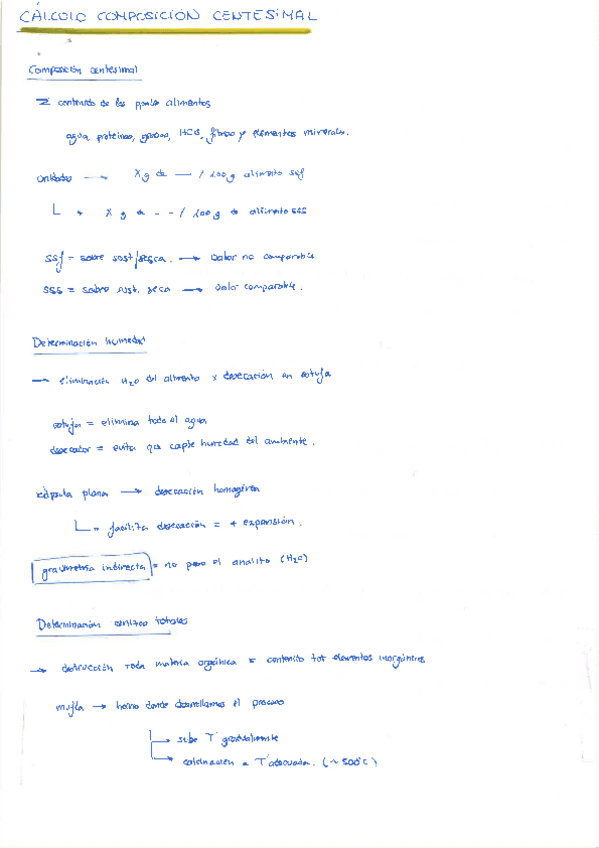 CÁLCULO COMPOSICIÓN CENTESIMAL
Composición centesimal
Σ contenido de los ppales alimentos
agua proteínas, grasas, HCO, fibra y elementos minerales.
unidades → X g de — / 100g alimento ssf
↳ X g de -- / 100g de alimento sss
ssf = sobre sust fresca. → valor no comparable
sss = sobre sust. seca → valor comparable.
Determinación humedad
→ eliminación H2O del alimento x desecación en estufa
estufa = elimina toda el agua
desecador = evita que capte humedad del ambiente.
cápsula plana → desecación homogénea
↳ = facilita desecación = + expansión.
gravimetría indirecta = no peso el analito (H2O)
Determinación cenizas totales
→ destrucción toda materia orgánica = contenido tot elementos inorgánicos
mufla → horno donde desarrollamos el proceso
↳ sube Tª gradualmente
↳ calcinación a Tª adecuada. (~ 500°C)